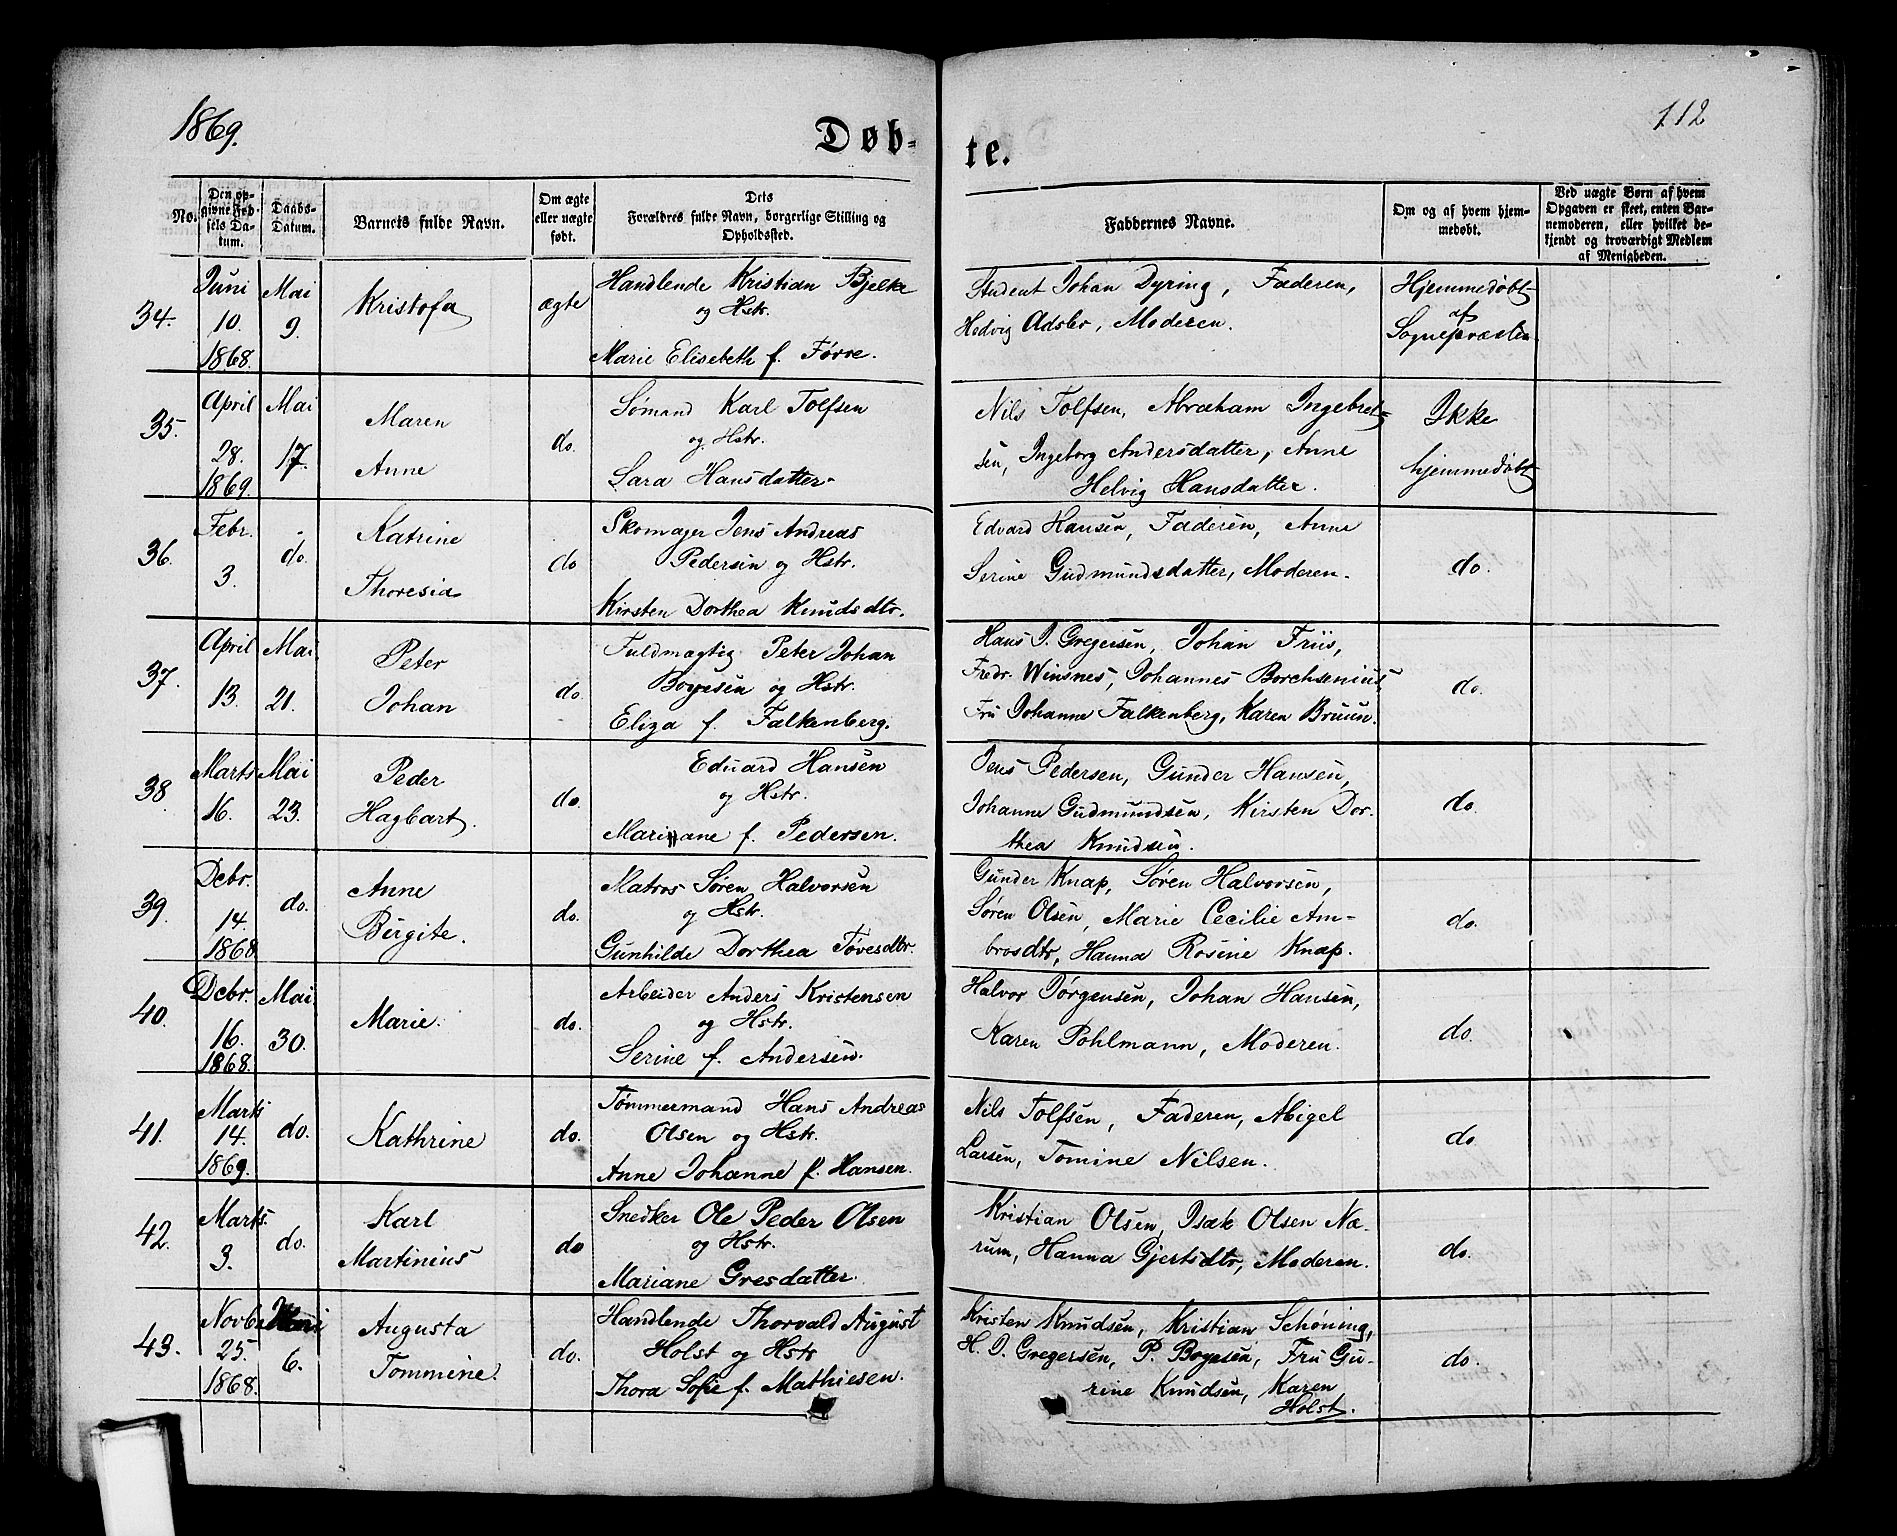 1869.
112
Døb-
te.
No.
Den op-
givne Fød-
sels Da-
tum.
Daabs-
Datum.
Barnets fulde Navn.
Om ægte
eller uægte
født.
Dets
Forældres fulde Navn, borgerlige Stilling og
Opholdssted.
Faddernes Navne.
Om og af hvem hjem-
medøbt.
Ved uægte Børn af hvem
Opgaven er skeet, enten Bar-
nemoderen, eller hvilket be-
kjendt og troværdigt Medlem
af Menigheden.
34.
Juni
10.
1868.
Mai
9.
Kristofa
ægte
Handlende Kristian Bjelke
og Hstr.
Marie Elisebeth f. Førre.
Student Johan Dyring, Faderen,
Hedvig Adsler, Moderen.
Hjemmedøbt
af
Sognepræsten
35.
April
28.
1869.
Mai
17.
Maren
Anne
do.
Sømand Karl Tolfsen
og Hstr.
Sara Hansdatter
Nils Tolfsen, Abraham Ingebret-
sen, Ingeborg Andersdatter, Anne
Helvig Hansdatter.
Ikke
hjemmedøbt
36.
Febr.
3.
do.
Katrine
Thoresia
do
Skomager Jens Andreas
Pedersen og Hstr.
Kirsten Dorthea Knudsdtr.
Edvard Hansen, Faderen, Anne
Serine Gudmundsdatter, Moderen.
do.
37.
April
13.
Mai
21.
Peter
Johan
do.
Fuldmægtig Peter Johan
Boyesen og Hstr.
Eliza f. Falkenberg.
Hans J. Gregersen, Johan Friis,
Fredr. Winsnes, Johannes Borchsenius,
Fru Johanne Falkenberg, Karen Bruun.
do.
38.
Marts
16.
Mai
23.
Peder
Hagbart.
do.
Eduard Hansen
og Hstr.
Mariane f. Pedersen.
Jens Pedersen, Gunder Hansen,
Johanne Gudmundsen, Kirsten Dor-
thea Knudsen.
do.
39.
Decbr.
14.
1868.
do.
Anne
Birgite.
do.
Matros Søren Halvorsen
og Hstr.
Gunhilde Dorthea Tøvesdtr.
Gunder Knap, Søren Halvorsen,
Søren Olsen, Marie Cecilie Am-
brosdtr, Hanna Rosine Knap.
do.
40.
Decbr.
16.
1868.
Mai
30.
Marie.
do.
Arbeider Anders Kristensen
og Hstr.
Serine f. Andersen.
Halvor Jørgensen, Johan Hansen,
Karen Pohlmann, Moderen.
do.
41.
Marts
14.
1869.
do.
Kathrine
do.
Tømmermand Hans Andreas
Olsen og Hstr.
Anne Johanne f. Hansen.
Nils Tolfsen, Faderen, Abigel
Larsen, Tomine Nilsen.
do.
42.
Marts.
3.
do.
Karl
Martinius
do
Snedker Ole Peder Olsen
og Hstr.
Mariane Gresdatter.
Kristian Olsen, Isak Olsen Næ-
rum, Hanna Gjertsdtr, Moderen.
do.
43.
Novbr.
25.
1868.
Juni
6.
Augusta
Tommine.
do.
Handlende Thorvald August
Holst og Hstr
Thora Sofie f. Mathiesen.
Kristen Knudsen, Kristian Schøning,
H. J. Gregersen, P. Boyesen, Fru Gu-
rine Knudsen, Karen
Holst.
do.